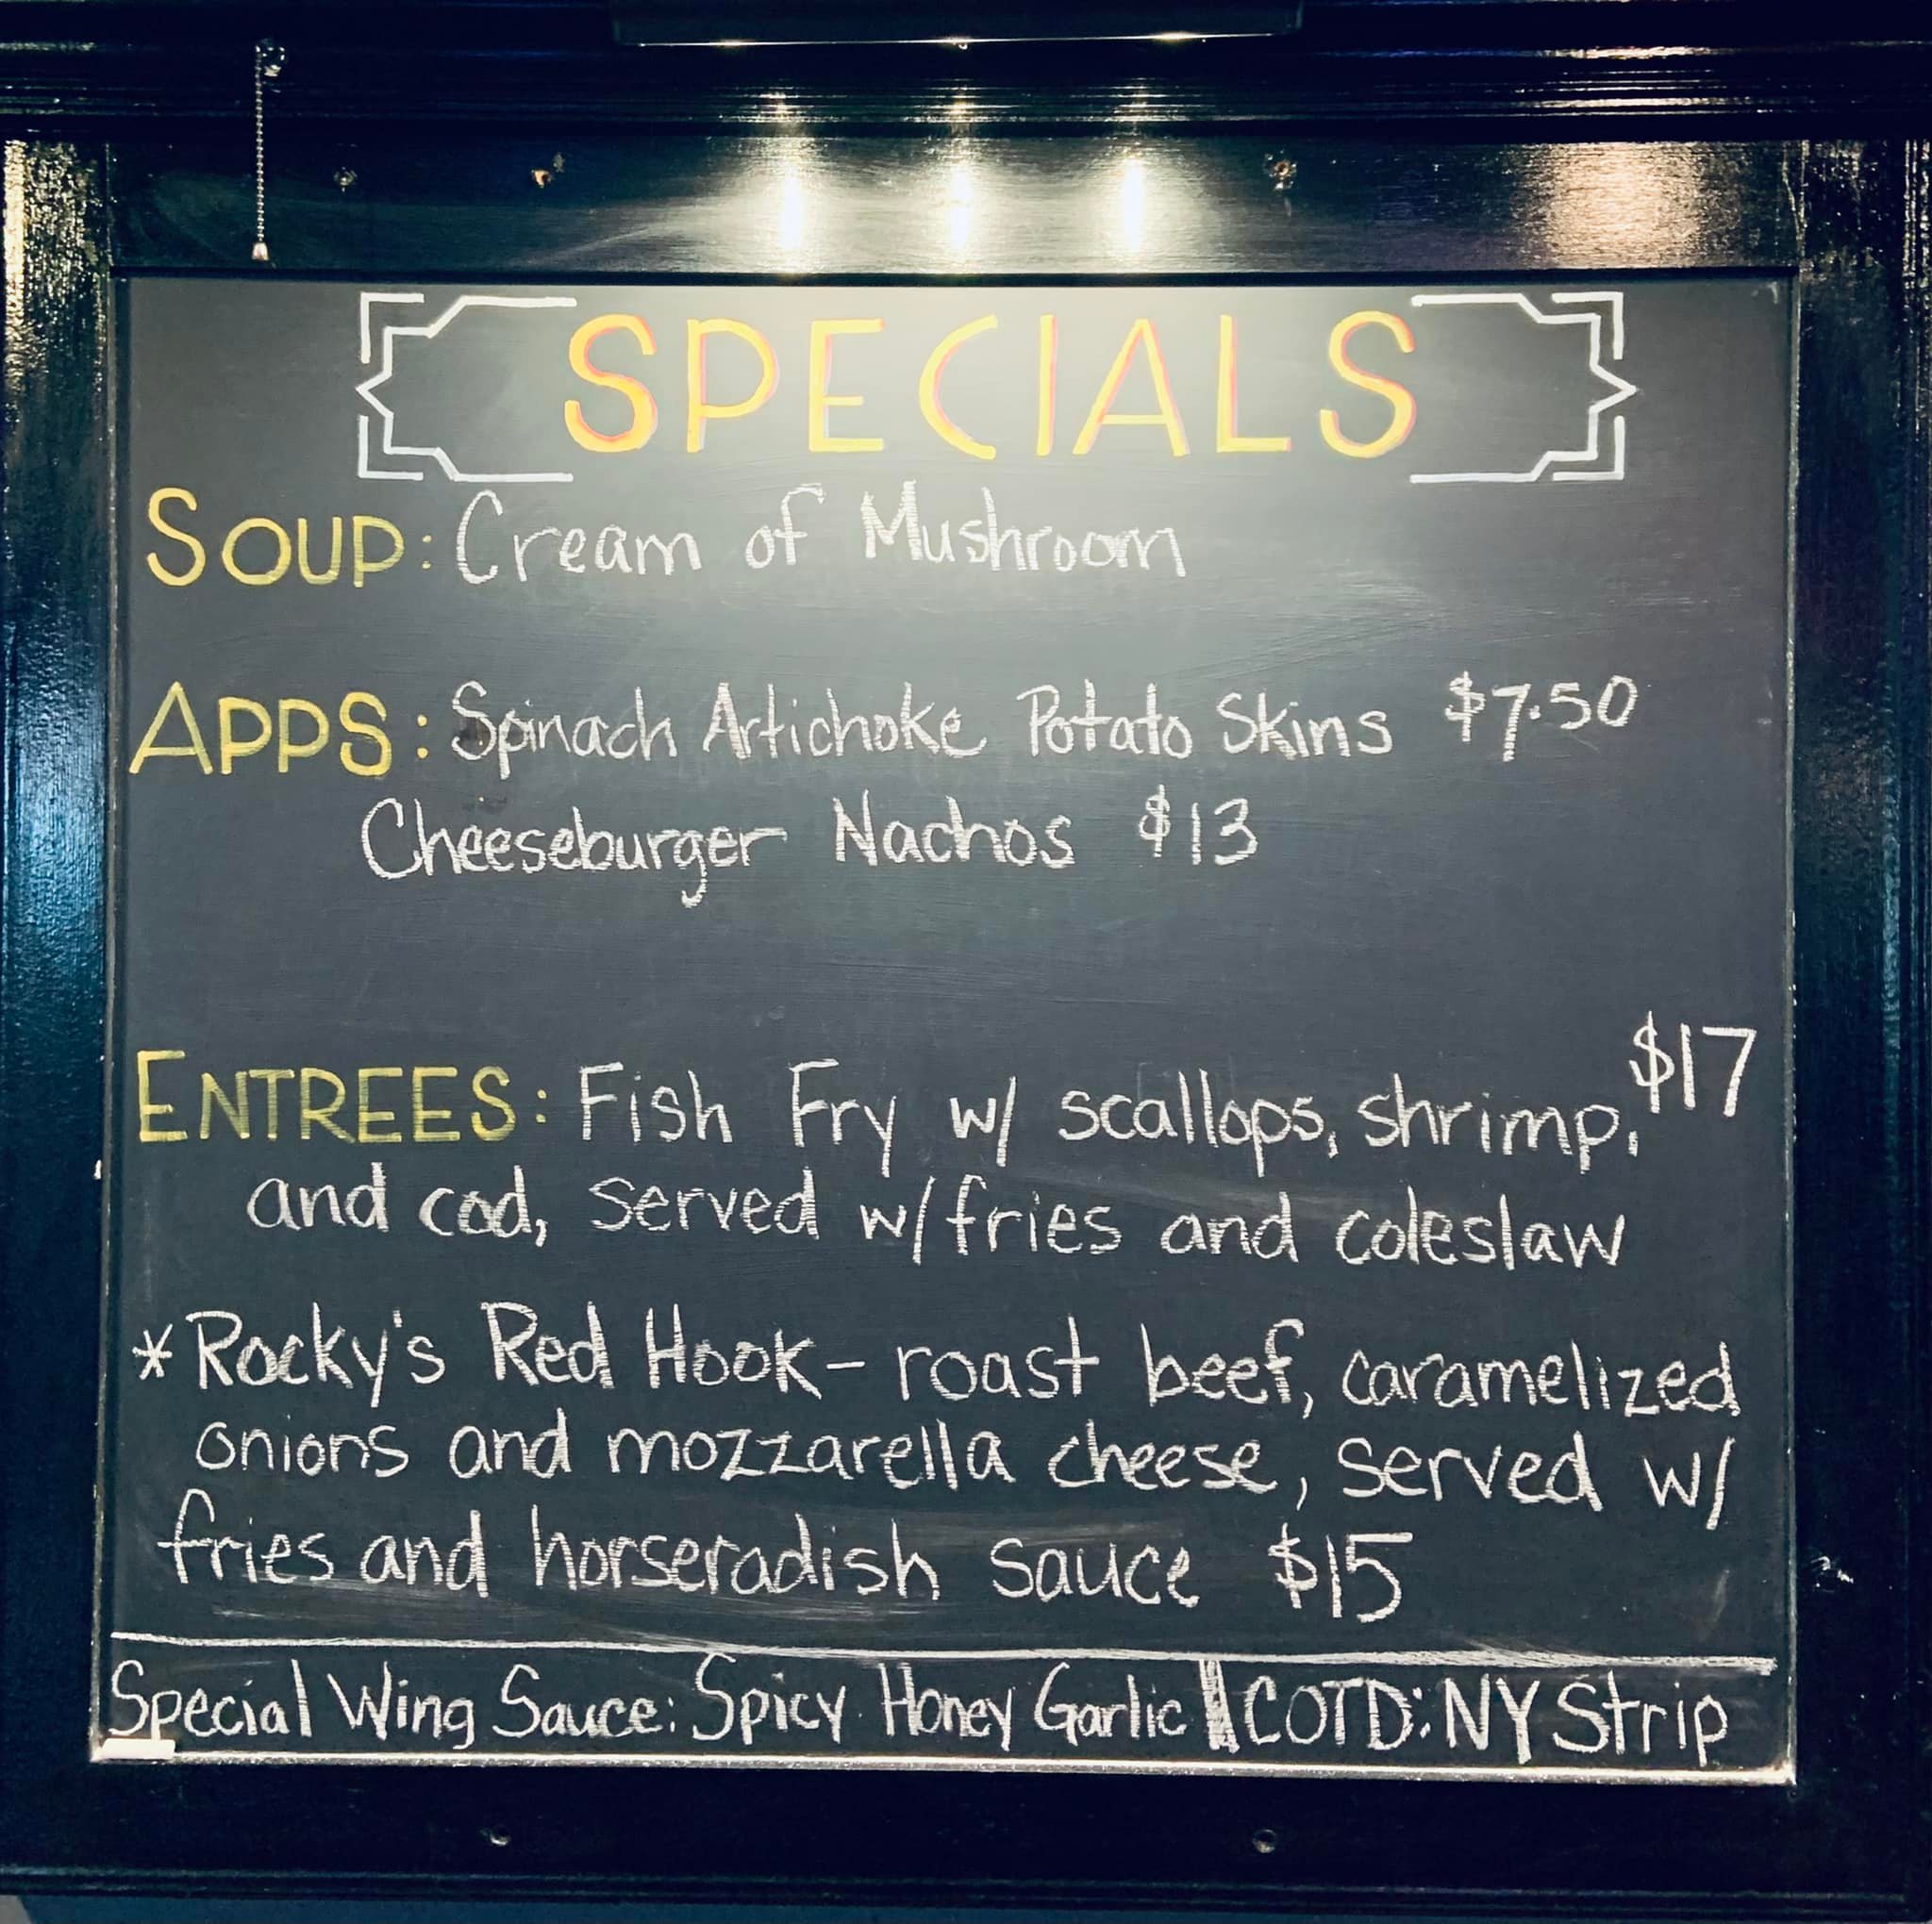 SPECIALS
SOUP: Cream of Mushroom
APPS: Spinach Artichoke Potato Skins $7.50
Cheeseburger Nachos $13
ENTREES: Fish Fry w/ scallops, shrimp, $17
and cod, served w/ fries and coleslaw
*Rocky's Red Hook- roast beef, caramelized
onions and mozzarella cheese, served w/
fries and horseradish sauce $15
Special Wing Sauce: Spicy Honey Garlic | COTD: NY Strip